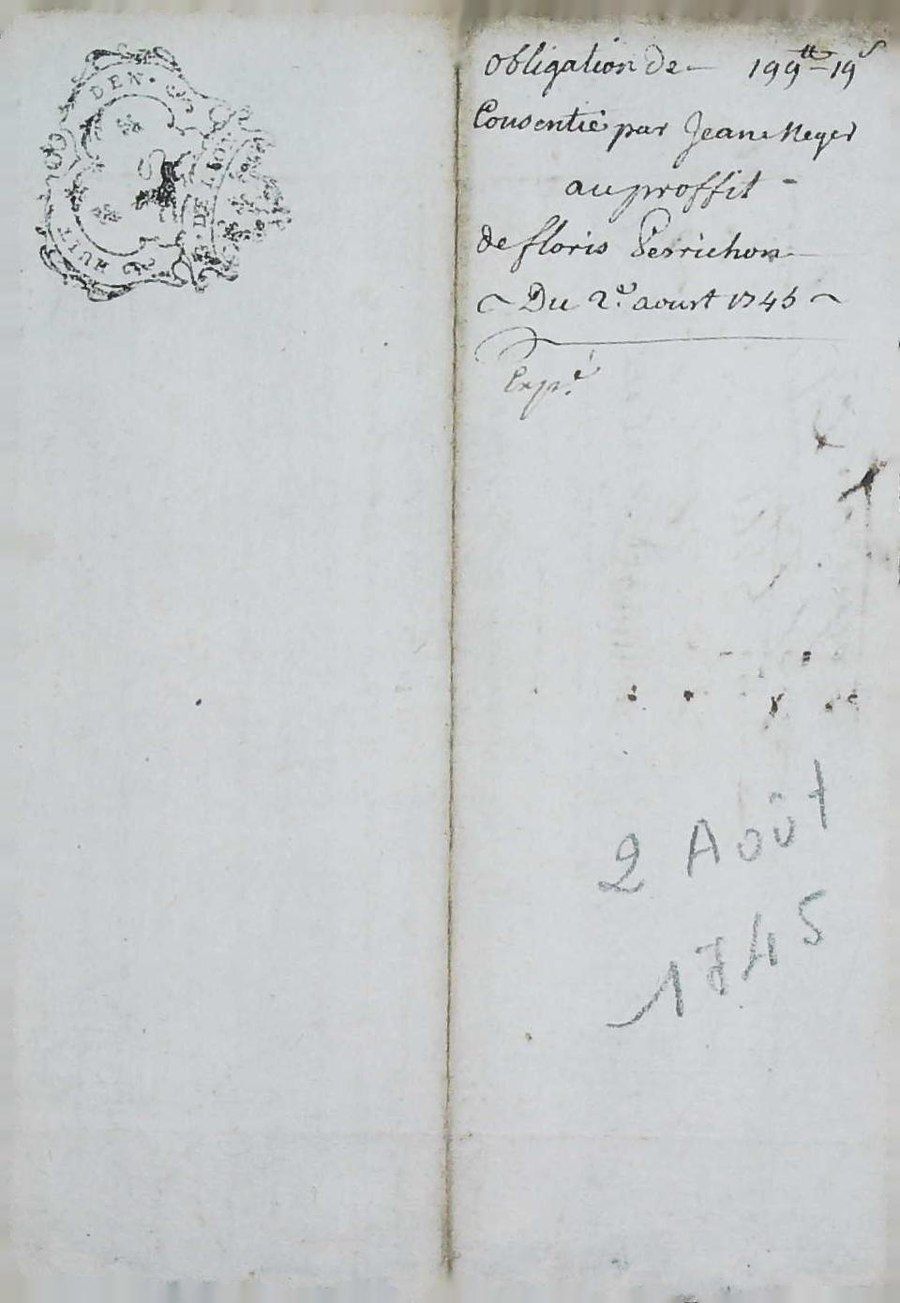 HUIT DEN.
G. DE LYON
obligation de - 199tt-19s
Consentie par Jeane Neyer
au proffit -
de floris Perrichon
~ Du 2e. aoust 1745 ~
Exp.é
2 Août
1745